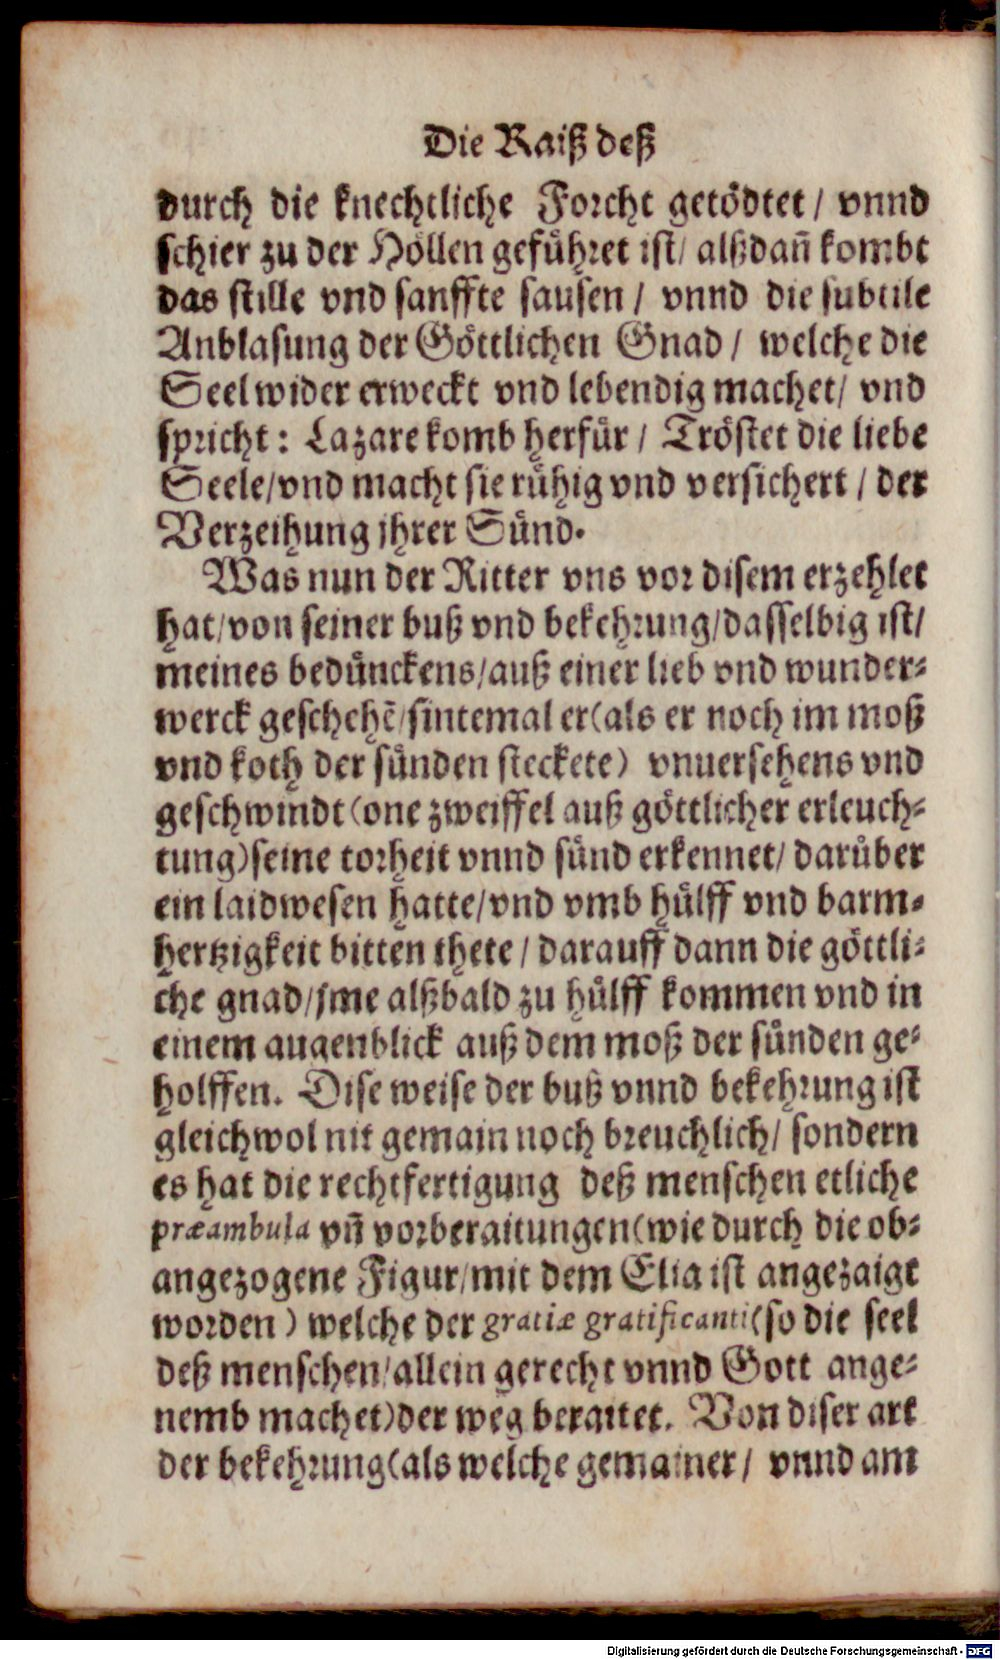 Die Raiß deß
durch die knechtliche Forcht getödtet / vnnd
schier zu der Höllen geführet ist / alßdañ kombt
das stille vnd sanffte sausen / vnnd die subtile
Anblasung der Göttlichen Gnad / welche die
Seel wider erweckt vnd lebendig machet / vnd
spricht: Lazare komb herfür / Tröstet die liebe
Seele / vnd macht sie rühig vnd versichert / der
Verzeihung jhrer Sünd.
Was nun der Ritter vns vor disem erzehlet
hat / von seiner buß vnd bekehrung / dasselbig ist /
meines bedünckens / auß einer lieb vnd wunder-
werck geschehẽ / sintemal er (als er noch im moß
vnd koth der sünden steckete) vnuersehens vnd
geschwindt (one zweiffel auß göttlicher erleuch-
tung) seine torheit vnnd sünd erkennet / darüber
ein laidwesen hatte / vnd vmb hülff vnd barm-
hertzigkeit bitten thete / darauff dann die göttli-
che gnad / jme alßbald zu hülff kommen vnd in
einem augenblick auß dem moß der sünden ge-
holffen. Dise weise der buß vnnd bekehrung ist
gleichwol nit gemain noch breuchlich / sondern
es hat die rechtfertigung deß menschen etliche
præambula vñ vorberaitungen (wie durch die ob-
angezogene Figur / mit dem Elia ist angezaigt
worden) welche der gratiæ gratificanti (so die seel
deß menschen / allein gerecht vnnd Gott ange-
nemb machet) der weg beraitet. Von diser art
der bekehrung (als welche gemainer / vnnd am
Digitalisierung gefördert durch die Deutsche Forschungsgemeinschaft - DFG